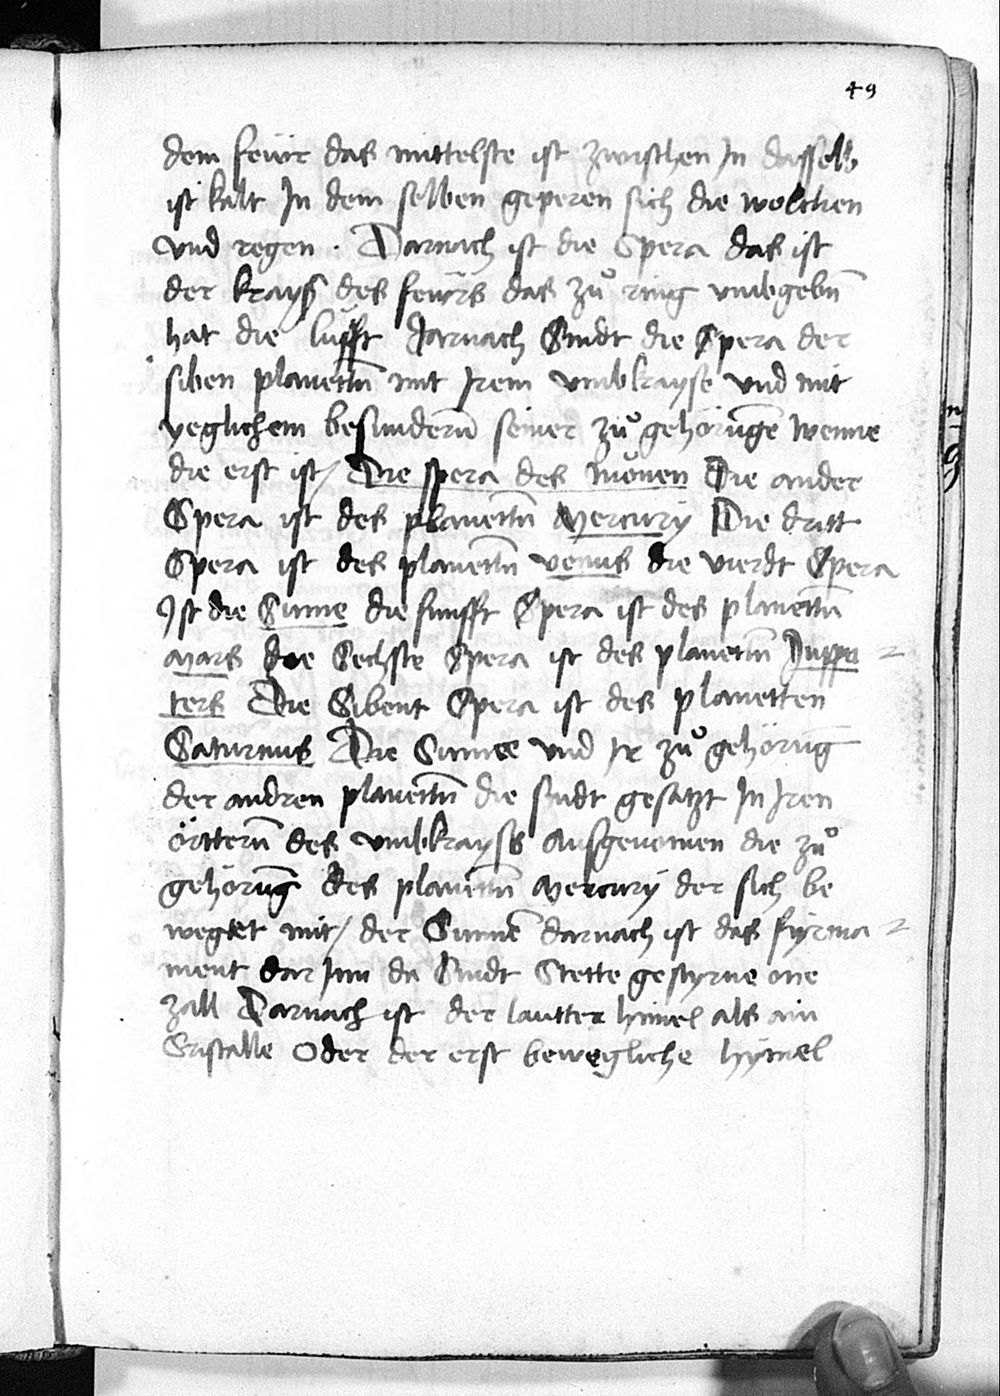 49
dem feür das mittelste ist zwischen In dasselb
ist kalt In dem selben geperen sich die wolcken
vnd regen . Darnach ist die Spera das ist
der krayß des feürs das zů ring vmbgebn̄
hat die lufft Darnach Sindt die Spera der
siben planettn̄ mit Irem vmbkrayse vnd mit
yeglichem besundern̄ seiner zů gehörūge Wenne
die erst ist / Die spera des monen Die ander
Spera ist des planettn̄ Mercurÿ Die dritt
Spera ist des planettn̄ venus die vierdt Spera
Ist die Sunne die funfft Spera ist des planettn̄
Mars die Sechste Spera ist des planettn̄ Juppi =
ters Die Sibent Spera ist des planetten
Saturnus Die Sunnee vnd Ir zů gehörūg
der andren planettn̄ die syndt gesatzt In Iren
örttern̄ des vmbkrayss Ausgenomen die zů
gehörūg des planettn̄ Mercurÿ der sich be
weget mit / der Sunnē darnach ist das fyrma =
ment dar Inn da Sindt Stette gestyrne one
zall Darnach ist der lautter himel als ain
Cristalle Oder der erst bewegliche hÿmel